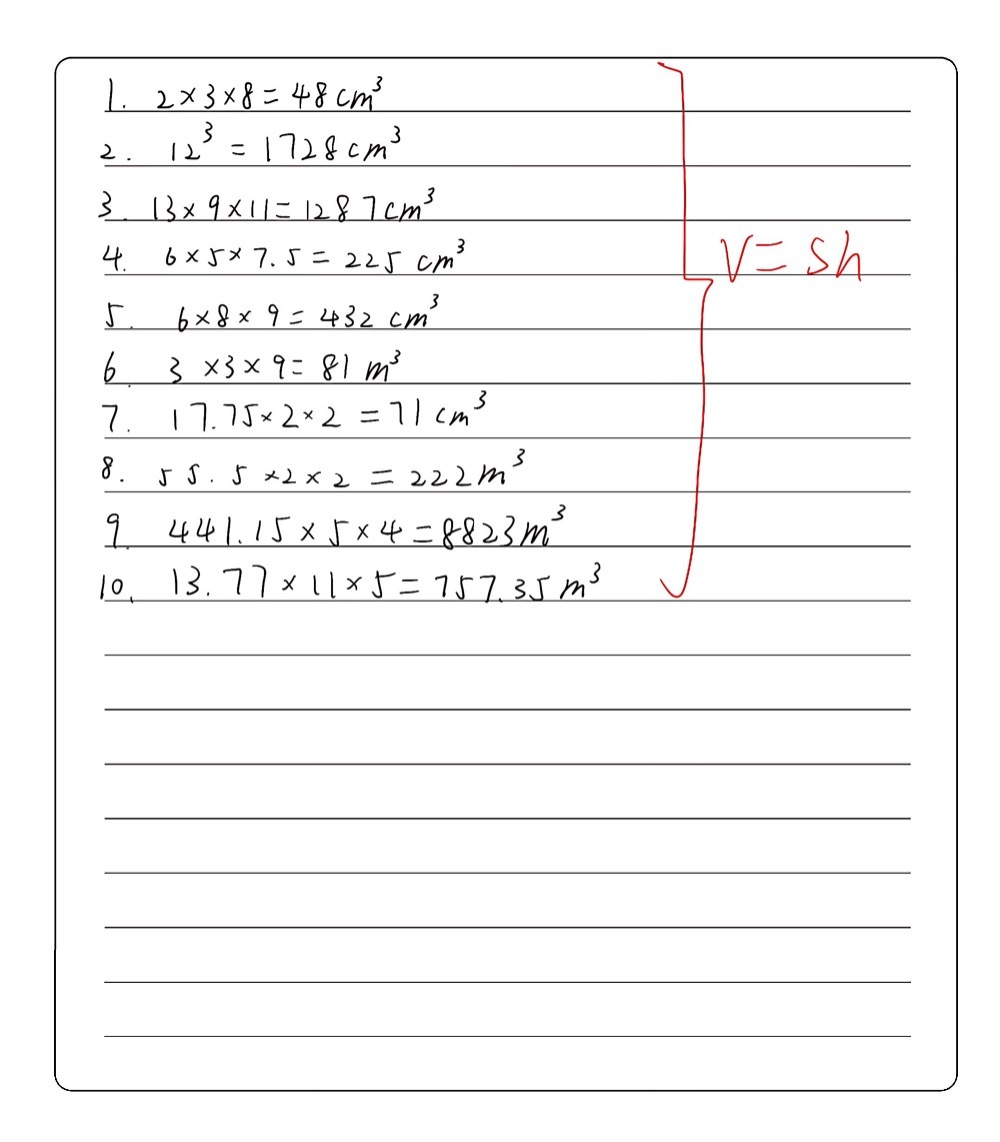 1. 2×3×8=48cm³
2. 12³ = 1728cm³
3. 13×9×11=1287cm³
4. 6×5×7.5=225 cm³
5. 6×8×9=432 cm³
6 3×3×9=81 m³
7. 17.75×2×2=71cm³
8. 55.5×2×2=222m³
9. 441.15×5×4=8823m³
10. 13.77×11×5=757.35m³
V=sh